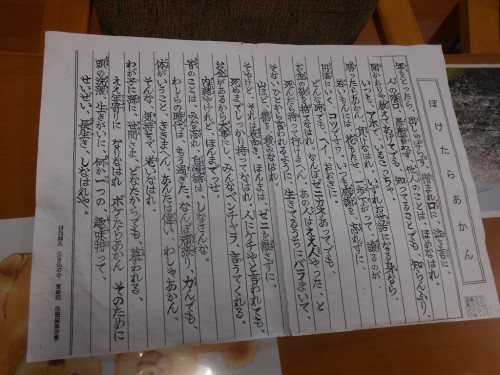 ぼけたらあかん
年をとったら、出しゃばらず、憎まれ口に、泣き言に、
人の陰口、愚痴いわず、他人のことは、ほめなはれ。
聞かれりゃ教えてあげても、知ってることでも、知らんふり、
いつでも、アホで、いるこっちゃ。
勝ったらあかん、負けなはれ、いずれお世話になる身なら、
若いもんには、花もたせ、一歩下って、譲るのが
円満にいく、コツですわ。いつも感謝を、忘れずに。
どんな時でも、へえーおおきに。
お金の欲を、捨てなはれ、なんぼゼニカネあってても、
死んだら持って行けまへん。あの人はええ人やった、と
そない、ひとから言われるように、生きてるうちにバラまいて、
山ほど、徳を、積みなはれ。
そやけど、それは表むき。ほんまは、ゼニを離さずに、
死ぬまでしっかり持ってなはれ。人にケチやと言われても、
お金があるから大事にし、みんなベンチャラ、言うてくれる。
内緒やけれど、ほんまでっせ。
昔のことは、みな忘れ、自慢話は、しなさんな、
わしらの時代は、もう過ぎた、なんぼ頑張り、力んでも、
体がいうこと、ききまへん、あんたは偉い、わしゃあかん、
そんな、気持ちで、老いなはれ。
わが子に孫に、世間さま、どなたからでも、慕われる、
ええ年寄りに なりなはれ ボケたらあかん そのために
頭の洗濯、生きがいに、何か一つの 趣味持って、
せいぜい、長生き、しなはれや。